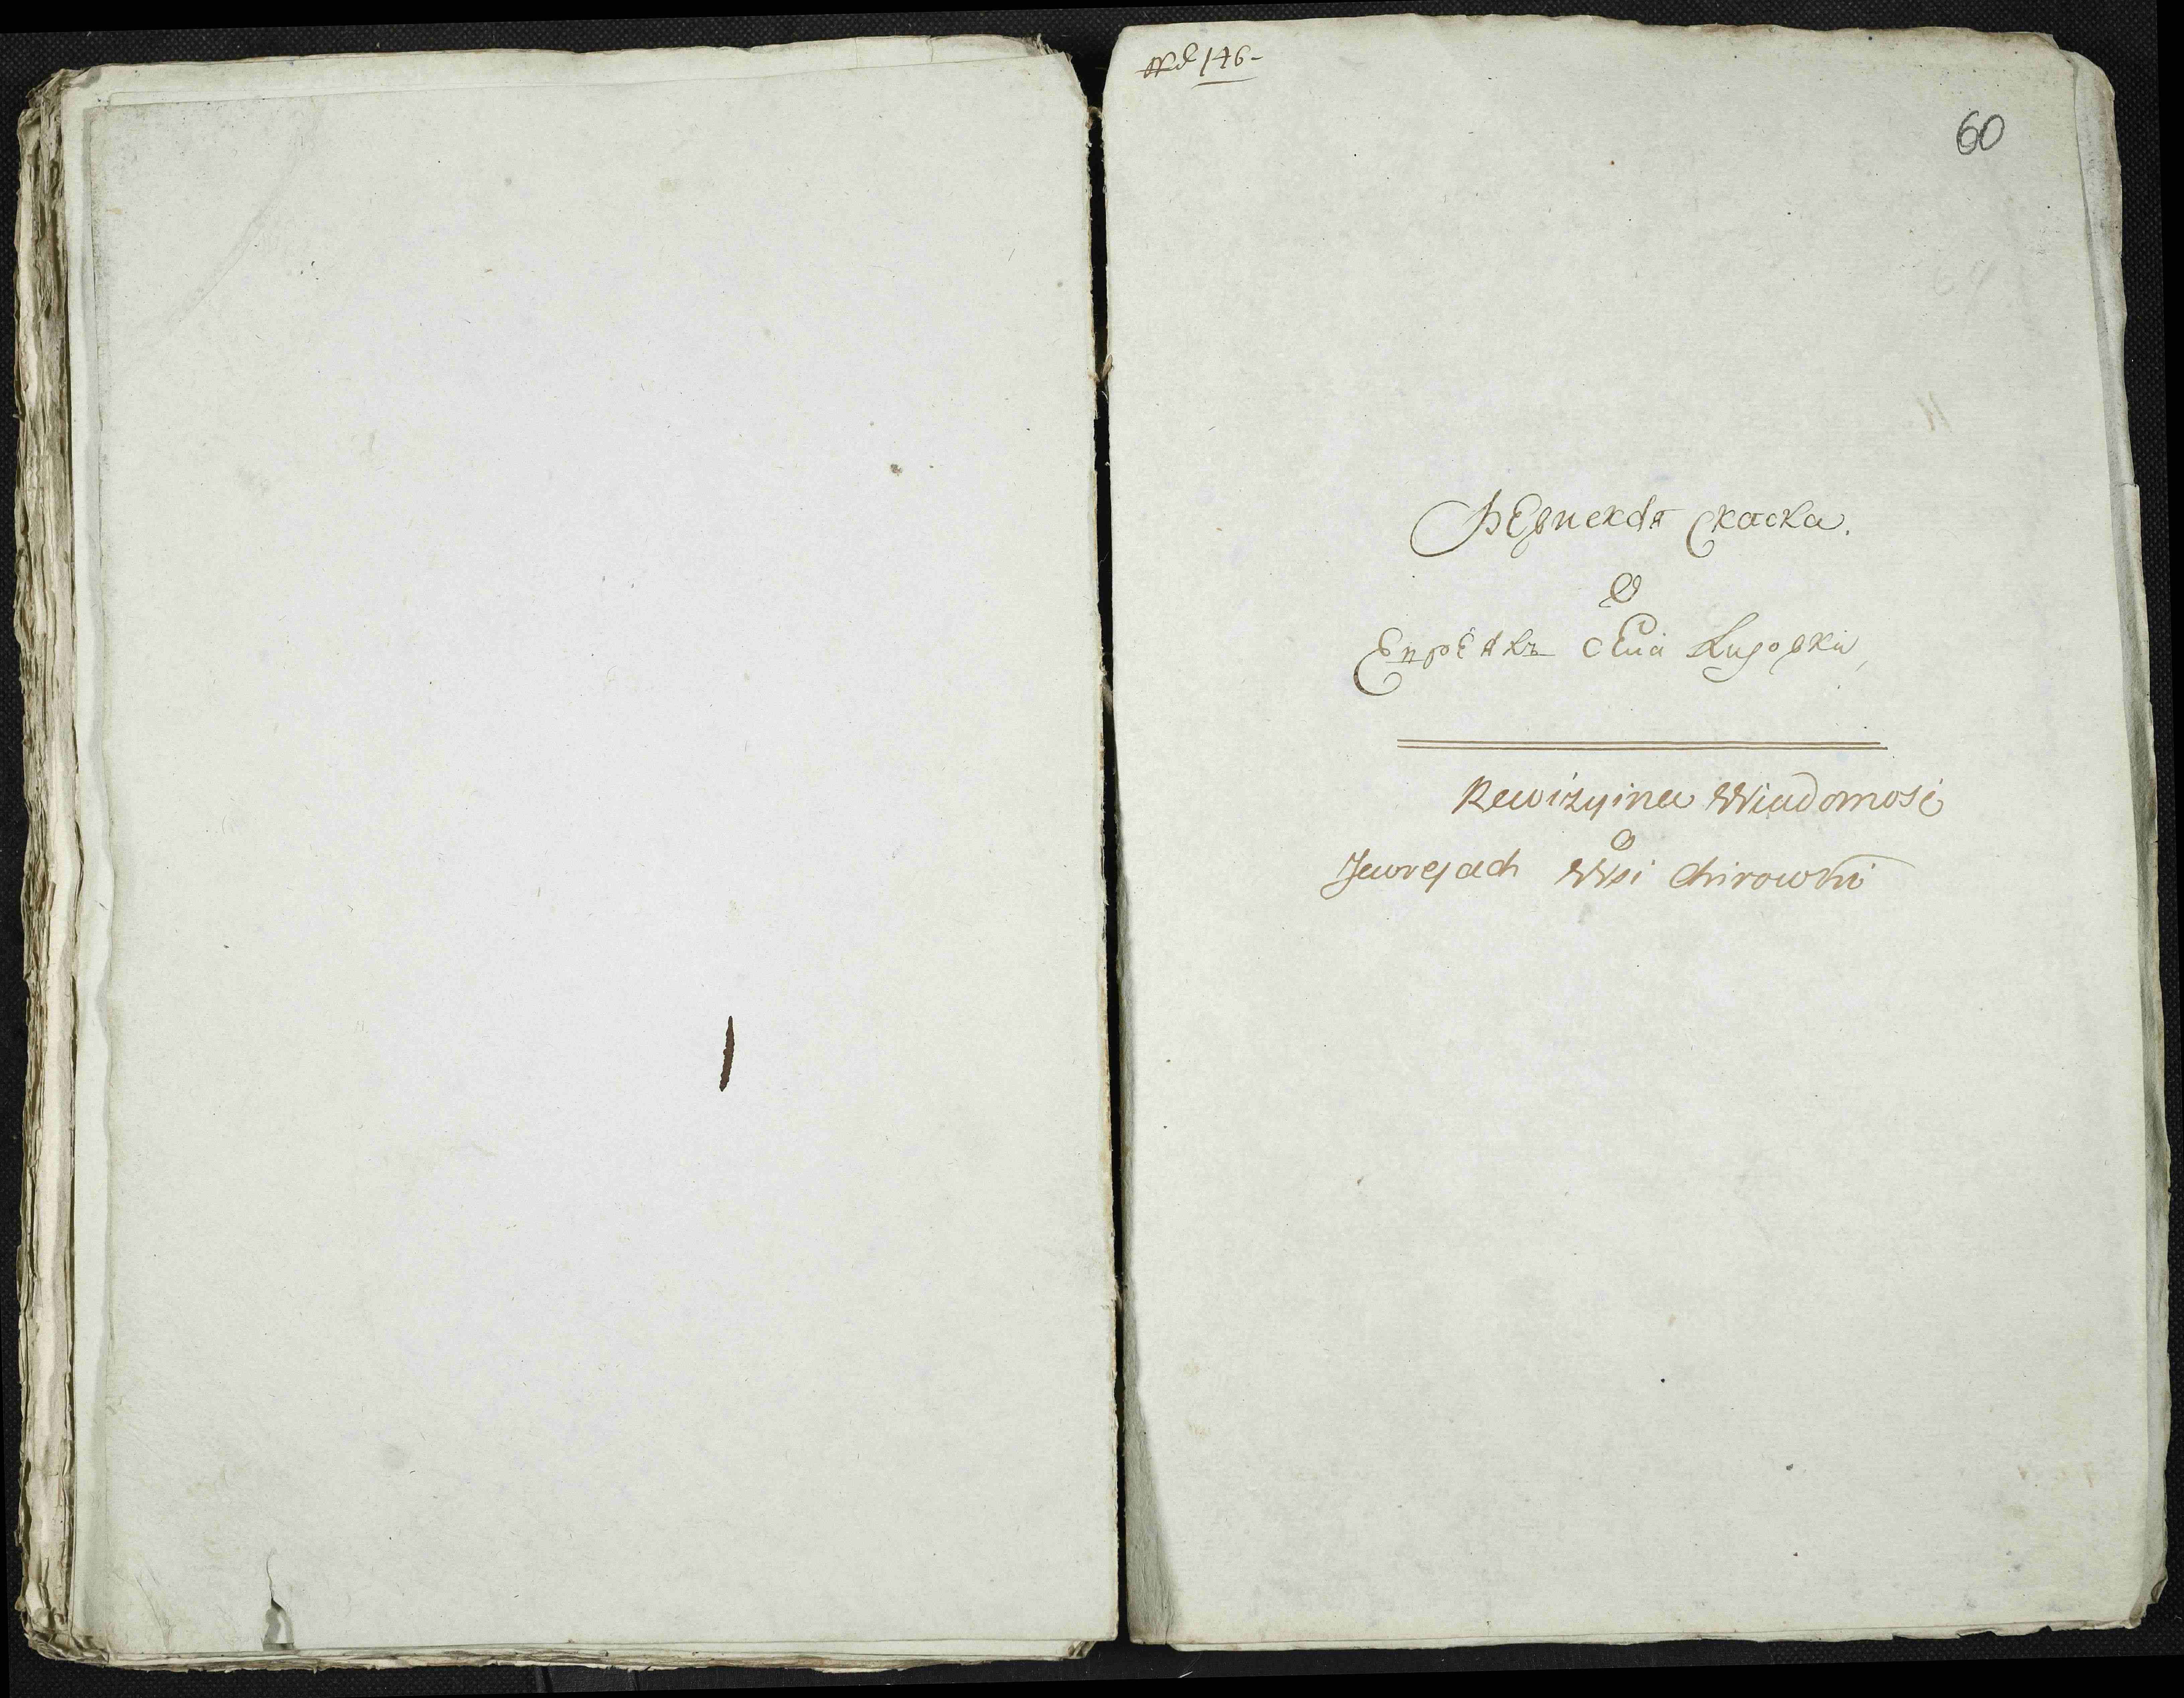 № 146-
60
Ревиская скаска.
О
Евреяхъ села Кировки,
Rewizyina Wiadomość
O
Jewrejach Wsi Chirowki